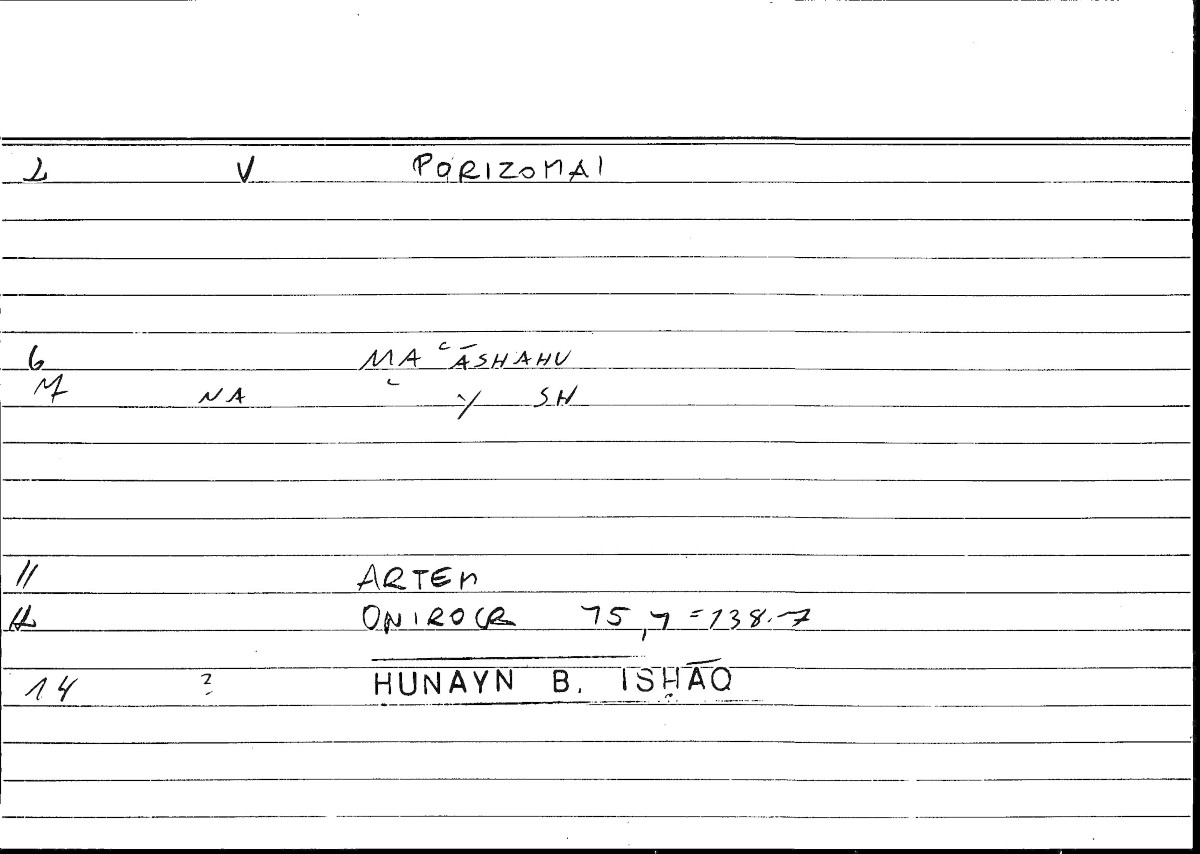 2 V PORIZOMAI
6 MA ʿĀSHAHU
M NA ʿ Y SH
11 ARTEM
12 ONIROCR 75,7 = 138.7
14 ? HUNAYN B. ISḤĀQ